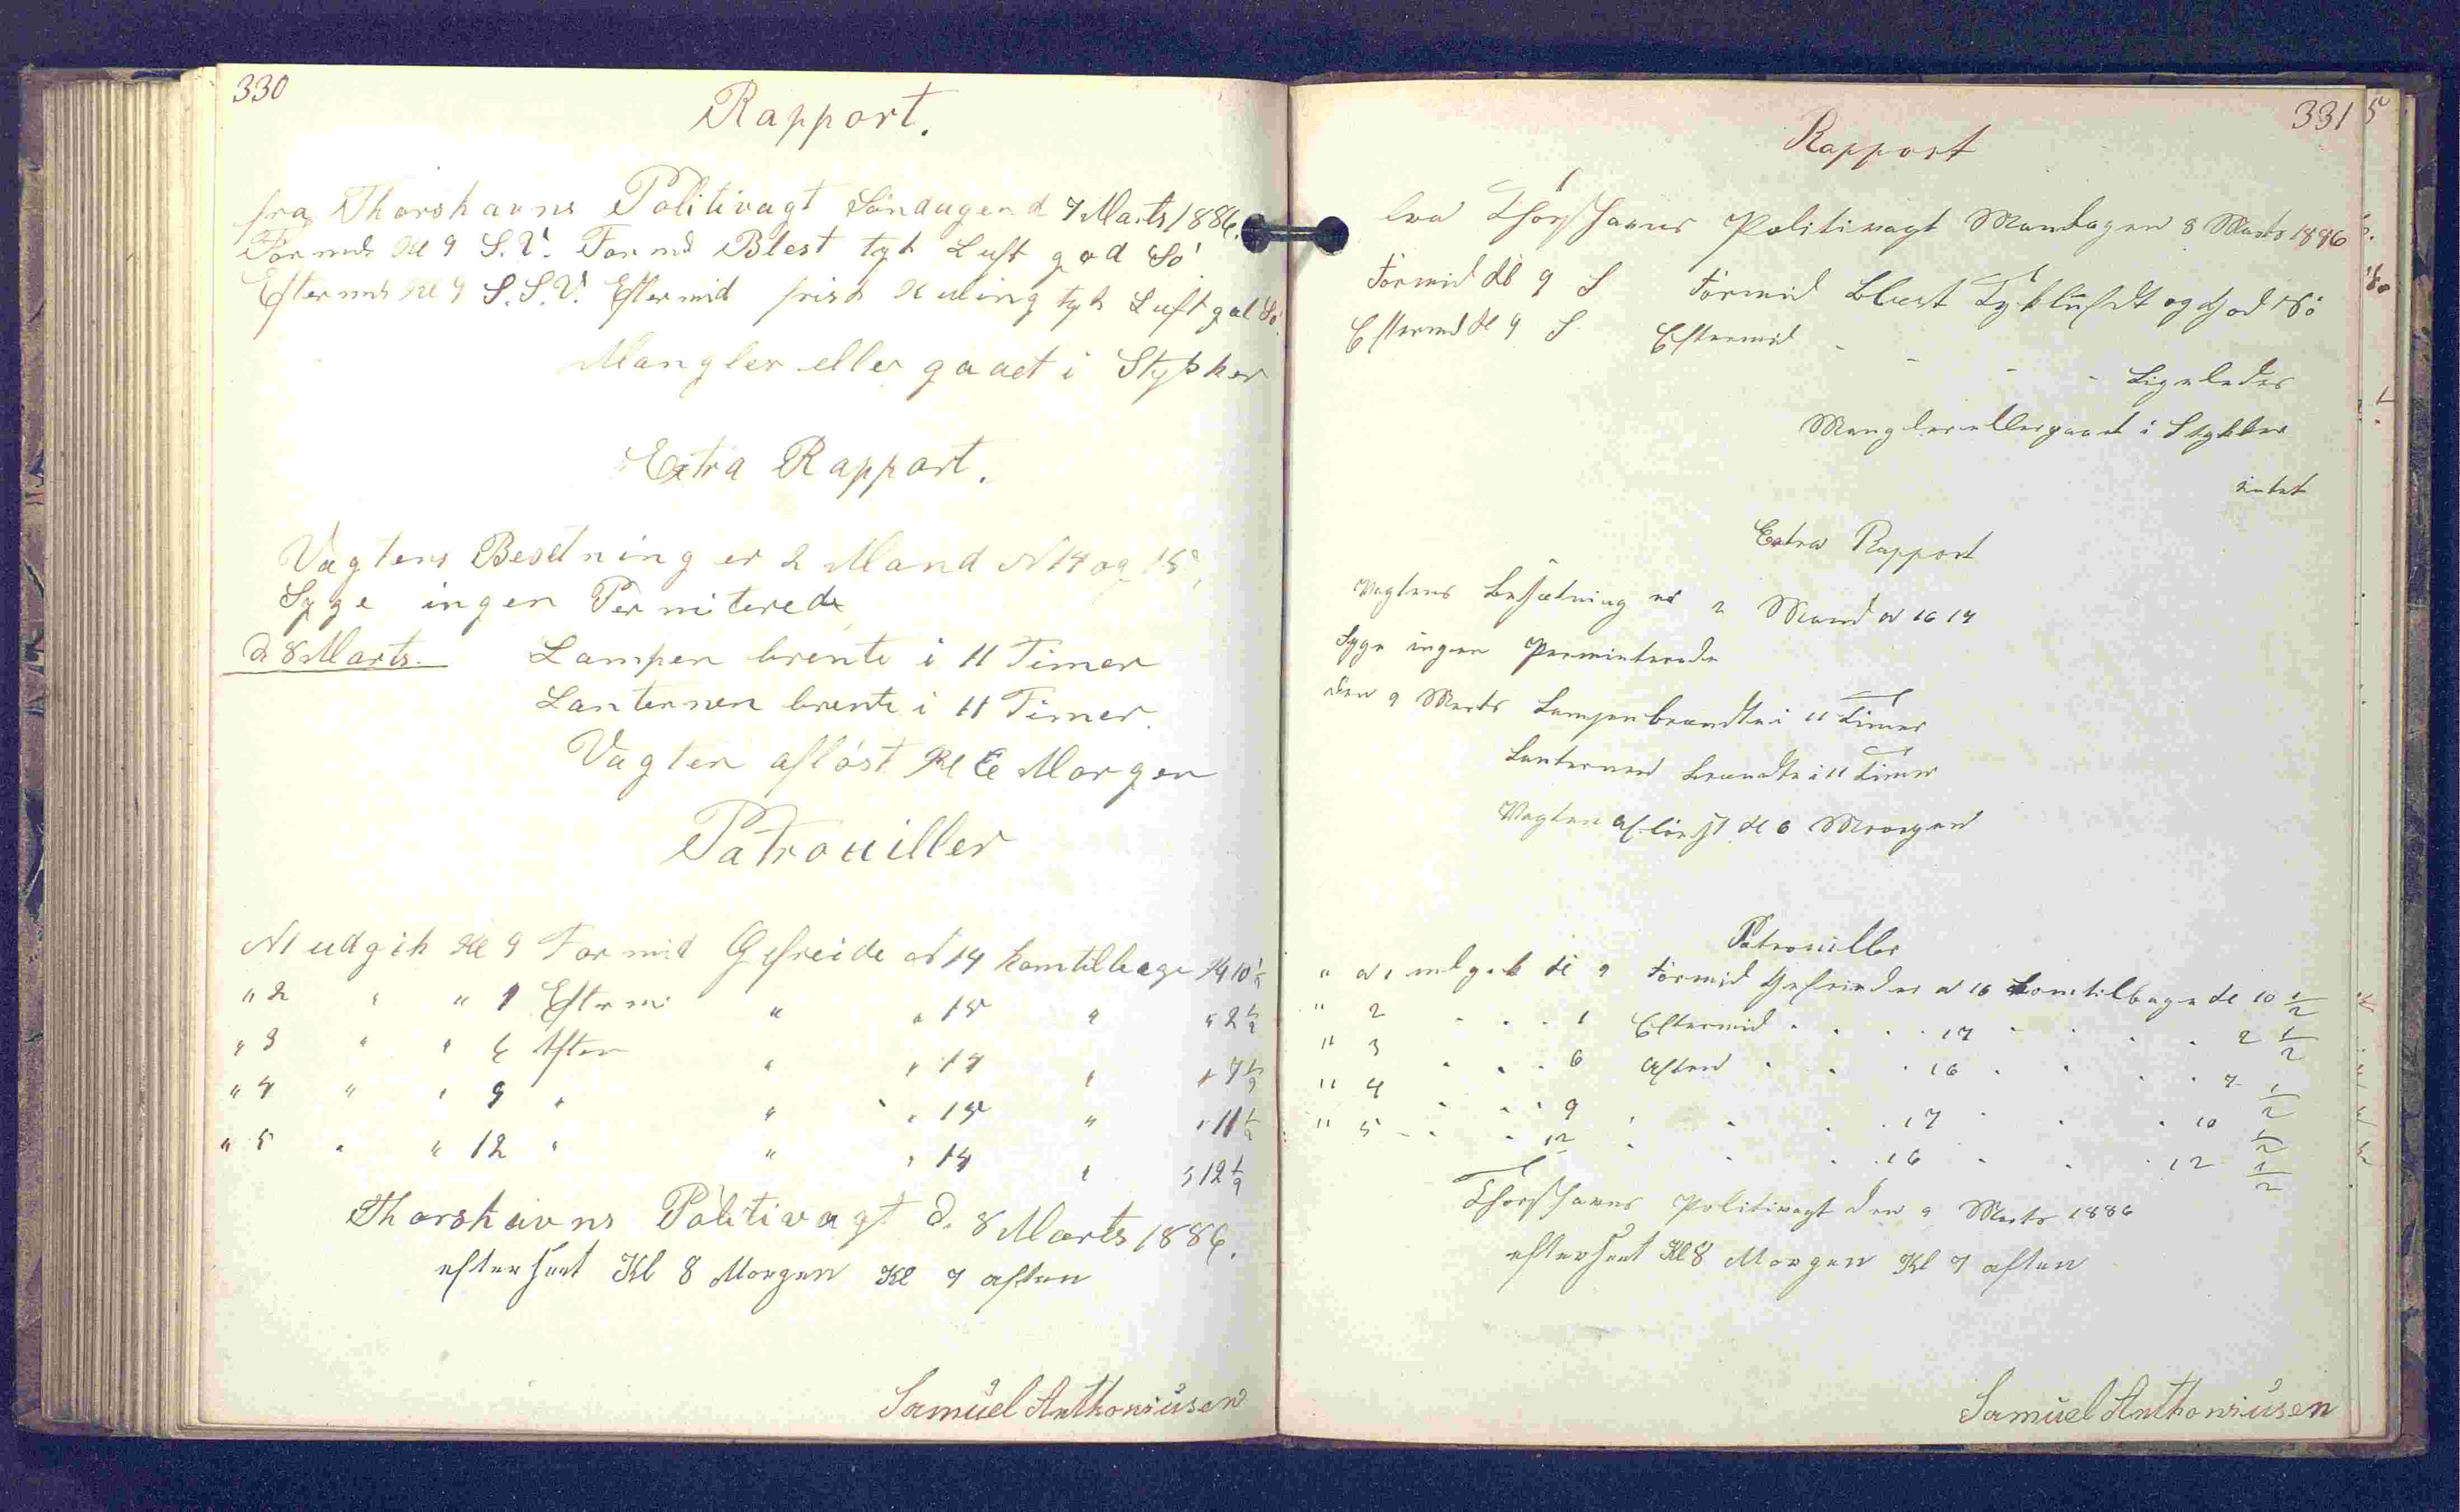 330
Rapport.
fra Thorshavns Politivagt Söndagen d 7 Marts 1886.
Formd Kl 9 S.V. Formd Blest tyk Luft god Sö
Eftermd Kl 9 S.S.V. Eftermid frisk Kuling tyk Luft god Sö
Mangler eller gaaet i Stykker
Extra Rapport.
Vagtens Besetning er 2 Mand N 14 og 15,
Syge ingen Permiterede
d 8 Marts. Lampen brente i 11 Timer
Lanternen brente i 11 Timer.
Vagten aflöst Kl 6 Morgen
Patrouiller
N1 udgik Kl 9 Formid Gefreide N 14 kom tilbage Kl 10 1/2
" 2 " " 1 Efterm " " 15 " " 2 1/2
" 3 " " 6 Aften " " 14 " " 7 1/2
" 4 " " 9 " " " 15 " " 11 1/2
" 5 " " 12 " " " 14 " " 12 1/2
Thorshavns Politivagt d. 8 Marts 1886.
efterseet Kl 8 Morgen Kl 7 aften
Samuel Anthoniusen
331
Rapport
fra Thorshavns Politivagt Mandagen 8 Marts 1886
Formid Kl 9 S Formid Blest Tyk luft og god Sö
Eftermd Kl 9 S Eftermid - - - - Ligeledes
Mangler eller gaaet i Stykker
intet
Extra Rapport
Vagtens Besætning er 2 Mand N 16 17
Syge ingen Perminterede
den 9 Marts Lampen brændte i 11 Timer
Lanternen brændte i 11 Timer
Vagten aflöst Kl 6 Morgen
Patrouiller
" N 1 udgik Kl 9 Formid Gefreider N 16 kom tilbage Kl 10 1/2
" 2 - - - 1 Eftermid - - - 17 - - - 2 1/2
" 3 - - - 6 Aften - - - 16 - - - 7 1/2
" 4 - - - 9 - - - 17 - - - 10 1/2
" 5 - - - 12 - - - 16 - - - 12 1/2
Thorshavns Politivagt den 9 Marts 1886
efterseet Kl 8 Morgen Kl 7 aften
Samuel Anthoniusen